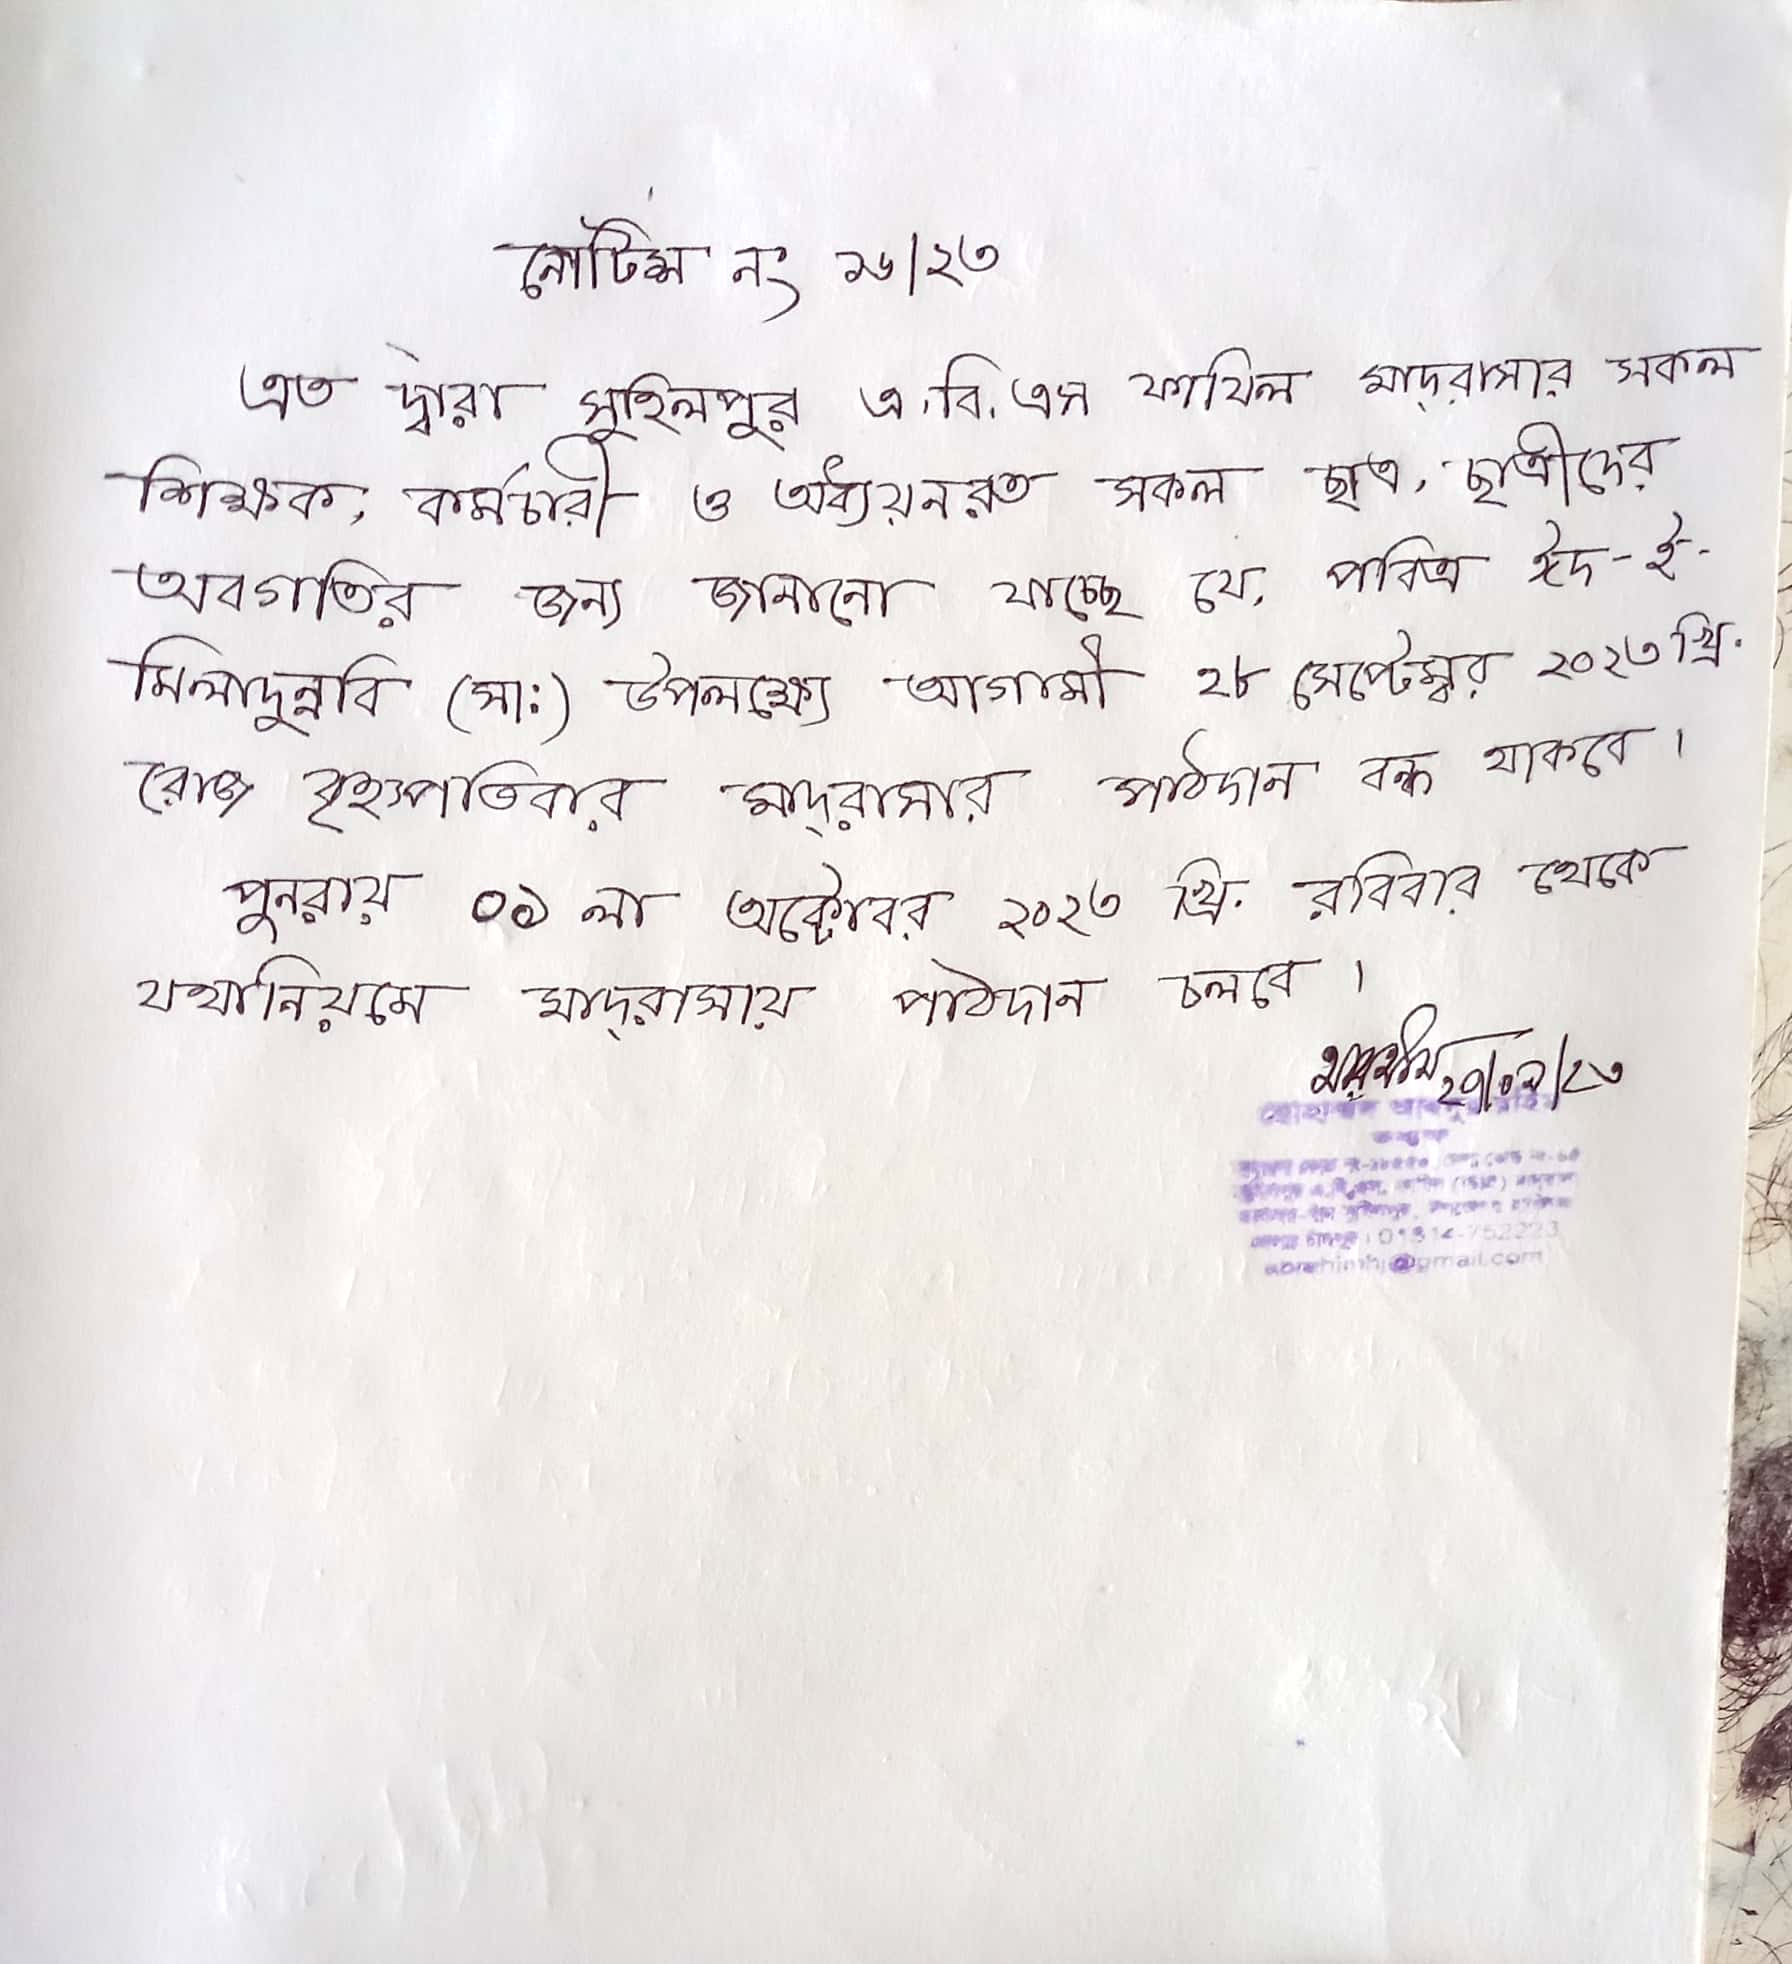 নোটিশ নং ১৬/২৩
এত দ্বারা সুহিলপুর এ.বি.এস ফাযিল মাদ্‌রাসার সকল
শিক্ষক, কর্মচারী ও অধ্যয়নরত সকল ছাত্র, ছাত্রীদের
অবগতির জন্য জানানো যাচ্ছে যে, পবিত্র ঈদ-ই-
মিলাদুন্নবি (সা:) উপলক্ষ্যে আগামী ২৮ সেপ্টেম্বর ২০২৩ খ্রি.
রোজ বৃহস্পতিবার মাদ্‌রাসার পাঠদান বন্ধ থাকবে।
পুনরায় ০১ লা অক্টোবর ২০২৩ খ্রি. রবিবার থেকে
যথানিয়মে মাদ্‌রাসায় পাঠদান চলবে।